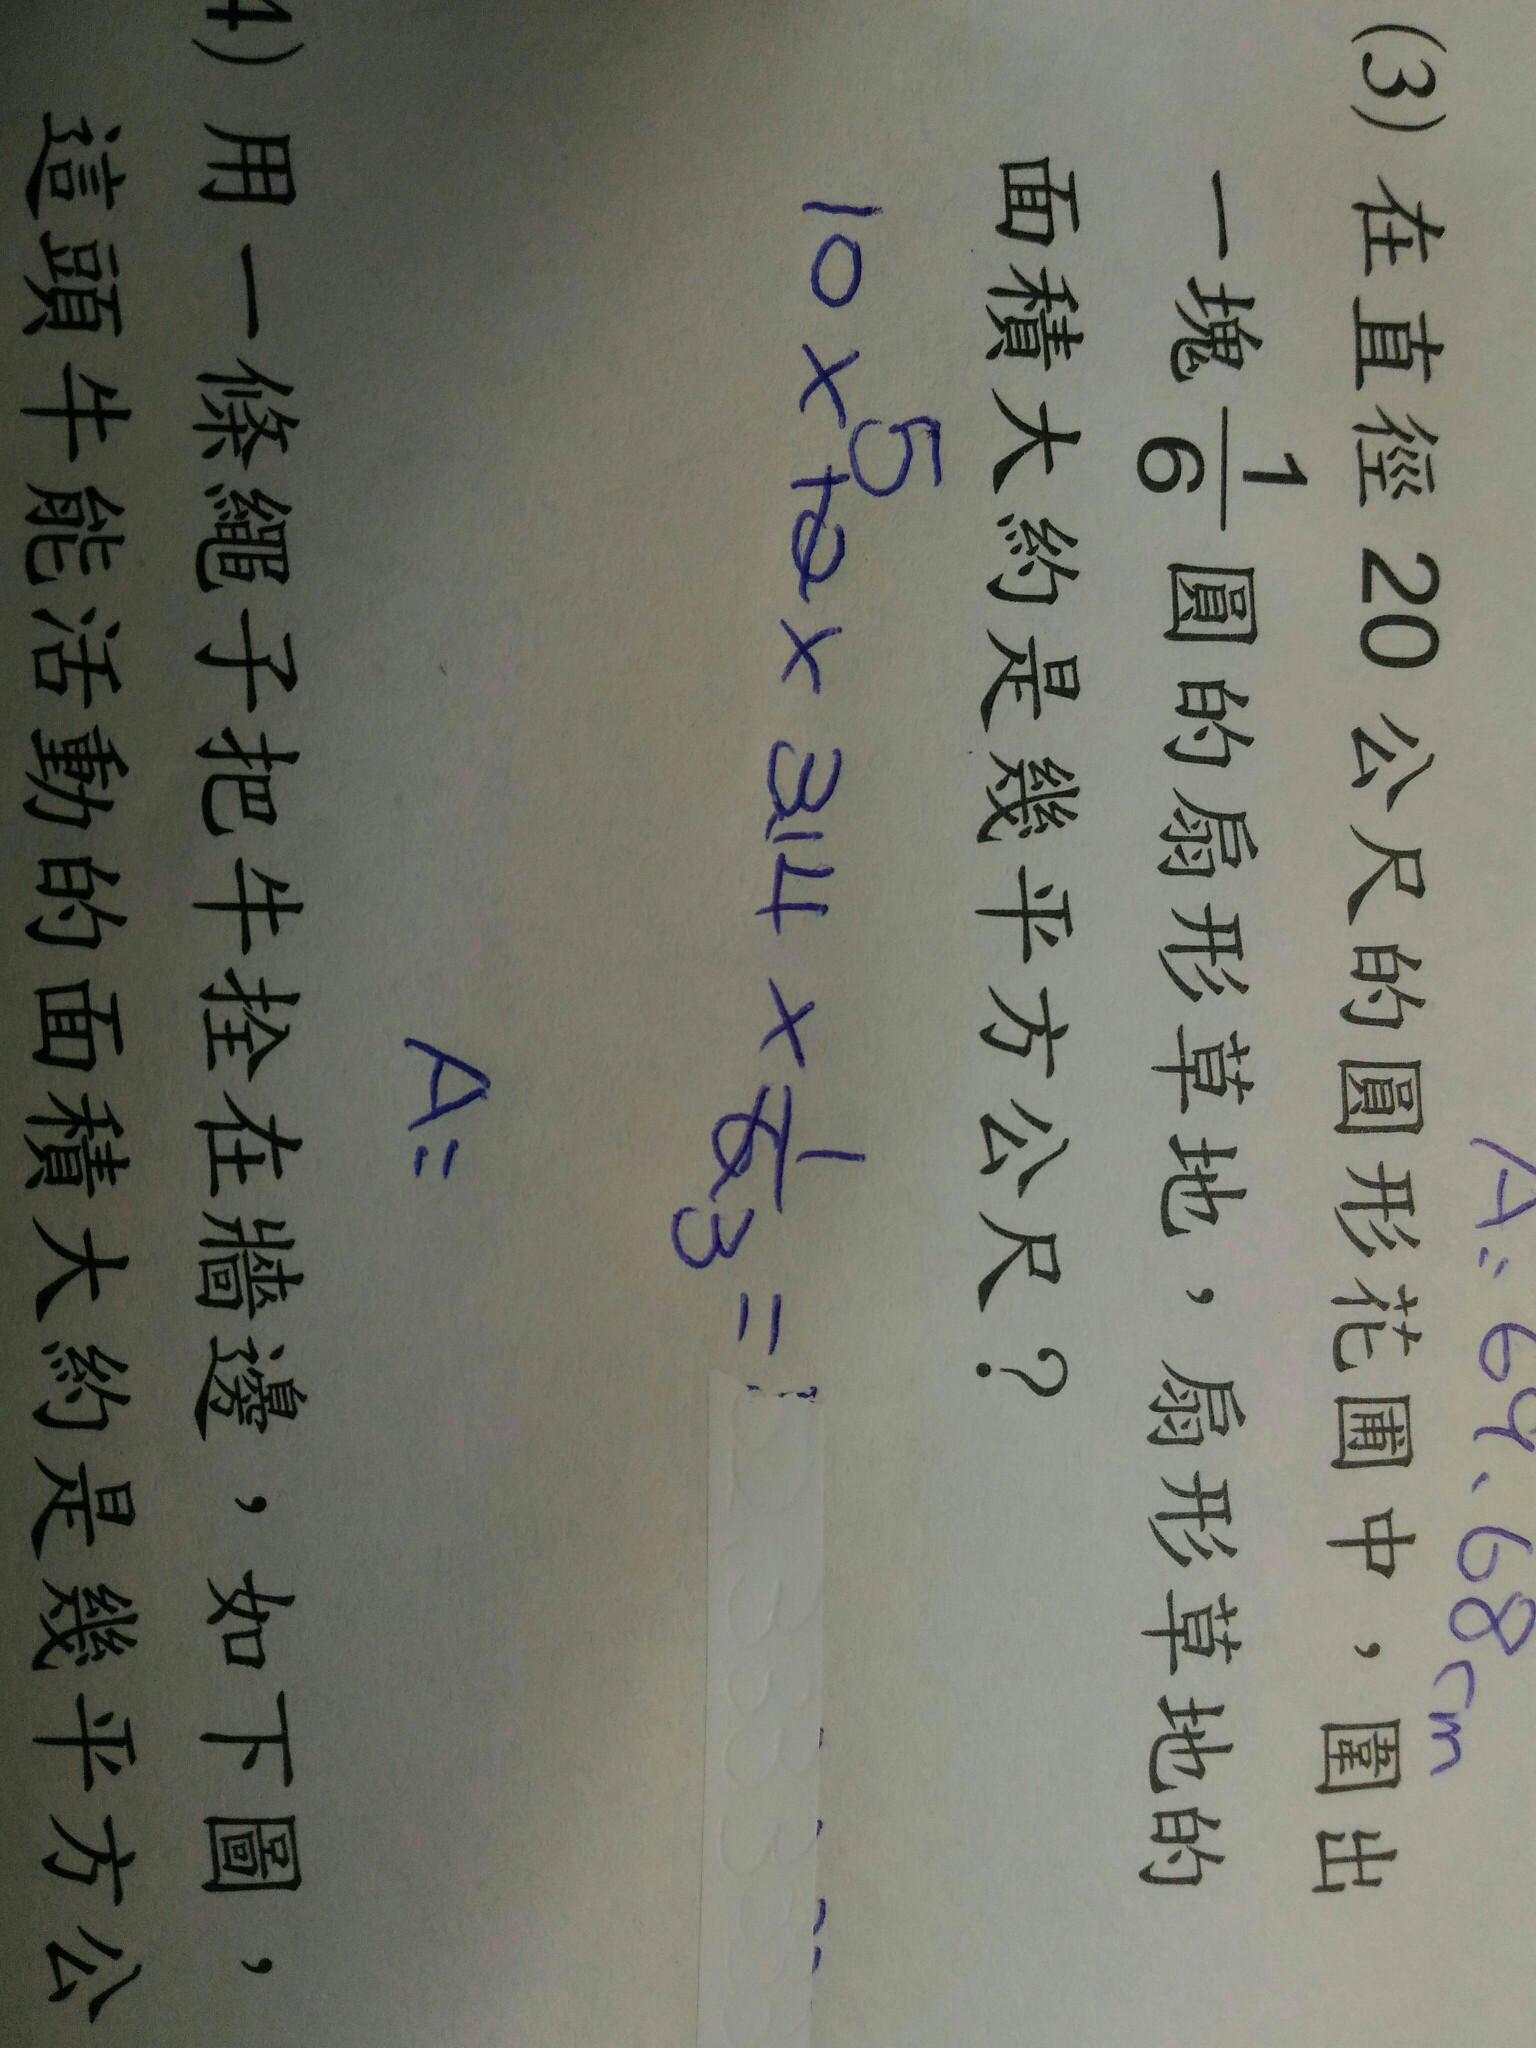 A: 64.68cm
(3) 在直徑 20 公尺的圓形花圃中，圍出
一塊 1/6 圓的扇形草地，扇形草地的
面積大約是幾平方公尺？
5
10 × 10 × 3.14 × 1/6 =
3
A:
4) 用一條繩子把牛拴在牆邊，如下圖，
這頭牛能活動的面積大約是幾平方公